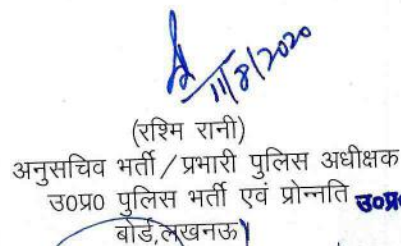 11/8/2020
(रश्मि रानी)
अनुसचिव भर्ती / प्रभारी पुलिस अधीक्षक
उ०प्र० पुलिस भर्ती एवं प्रोन्नति उ०प्र०
बोर्ड,लखनऊ